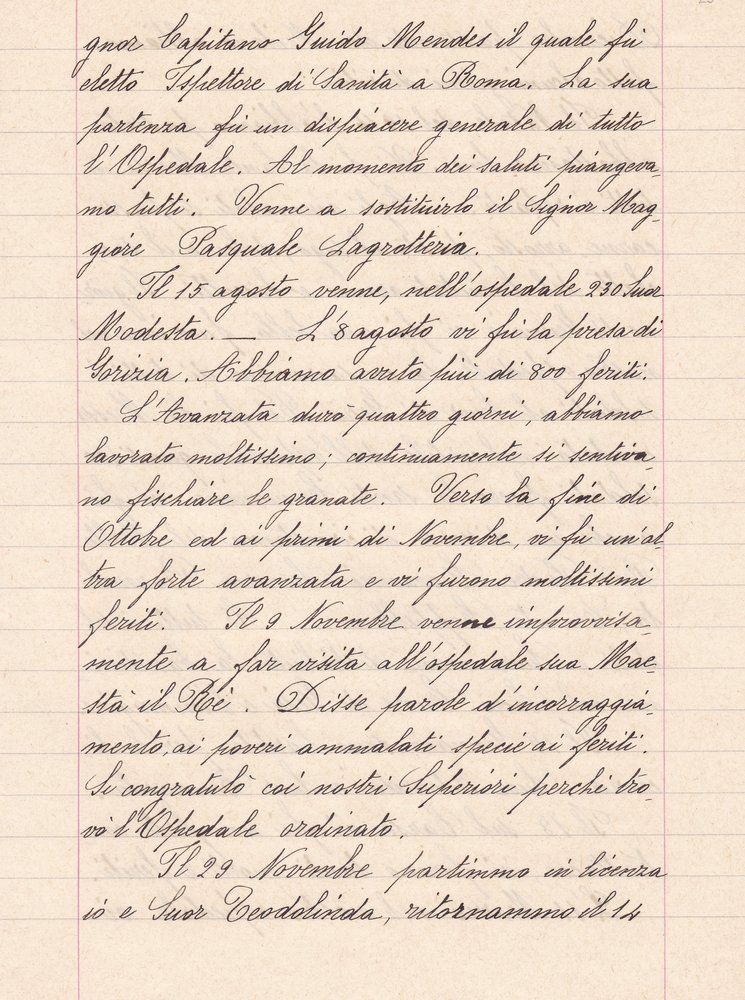 gnor Capitano Guido Mendes il quale fù
eletto Ispettore di Sanità a Roma. La sua
partenza fù un dispiacere generale di tutto
l'Ospedale. Al momento dei saluti piangeva-
mo tutti. Venne a sostituirlo il Signor Mag-
giore Pasquale Lagrotteria.
Il 15 agosto venne, nell'ospedale 230 Suor
Modesta. — L'8 agosto vi fù la presa di
Gorizia. Abbiamo avuto più di 800 feriti.
L'Avanzata durò quattro giorni, abbiamo
lavorato moltissimo; continuamente si sentiva-
no fischiare le granate. Verso la fine di
Ottobre ed ai primi di Novembre, vi fù un'al-
tra forte avanzata e vi furono moltissimi
feriti. Il 9 Novembre venne improvvisa-
mente a far visita all'ospedale sua Mae-
stà il Rè. Disse parole d'incorraggia-
mento, ai poveri ammalati specie ai feriti.
Si congratulò coi nostri Superiori perchè tro-
vò l'Ospedale ordinato.
Il 29 Novembre partimmo in licenza
io e Suor Teodolinda, ritornammo il 14